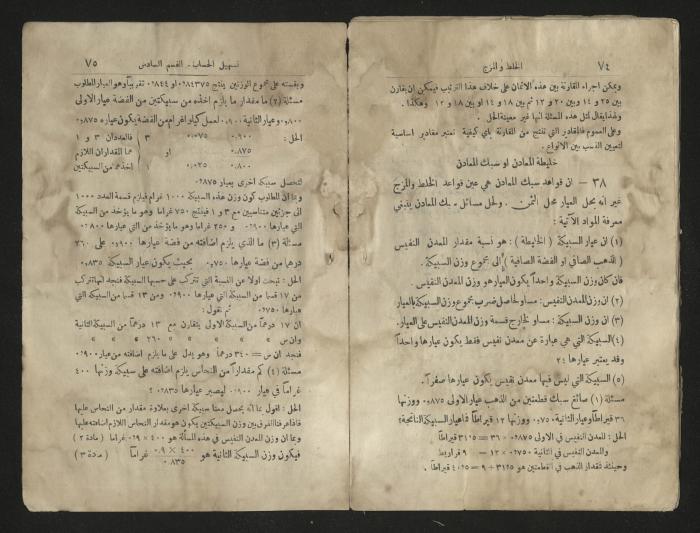 ٧٤
الخلط والمزج
ويمكن اجراء المقارنة بين هذه الاثمان على خلاف هذا الترتيب فيمكن ان يقارن
بين ٢٥ و ١٤ وبين ٢٠ و ١٢ ثم بين ١٨ و ١٤ او بين ١٨ و ١٢ وهكذا.
ولهذا يقال لمثل هذه المسئلة انها غير معينة الحل
وعلى العموم فالمقادير التي تنتج من المقارنة بأي كيفية تعتبر مقادير اساسية
لتعيين النسب بين الانواع.
خليطة المعادن او سبك المعادن
٣٨ — ان قواعد سبك المعادن هي عين قواعد الخلط والمزج
غير انه يحل العيار محل الثمن. ولحل مسائل سبك المعادن ينبغي
معرفة المواد الآتية:
(١) ان عيار السبيكة (الخليطة): هو نسبة مقدار المعدن النفيس
(الذهب الصافي او الفضة الصافية) إلى مجموع وزن السبيكة.
فان كان وزن السبيكة واحداً يكون العيار هو وزن المعدن النفيس.
(٢) ان وزن المعدن النفيس: مساو لحاصل ضرب مجموع وزن السبيكة بالعيار
(٣) ان وزن السبيكة: مساو لخارج قسمة وزن المعدن النفيس على العيار.
(٤) السبيكة التي هي عبارة عن معدن نفيس فقط يكون عيارها واحداً
وقد يعتبر عيارها ٢٤
(٥) السبيكة التي ليس فيها معدن نفيس يكون عيارها صفراً.
مسئلة (١) صائغ سبك قطعتين من الذهب عيار الاولى ٠٫٨٧٥ ووزنها
٣٦ قيراطاً وعيار الثانية ٠٫٧٥٠ ووزنها ١٢ قيراطاً فما عيار السبيكة الناتجة؟
الحل: للمعدن النفيس في الاولى ٠٫٨٧٥ × ٣٦ = ٣١٫٥ قيراطاً
وللمعدن النفيس في الثانية ٠٫٧٥٠ × ١٢ = ٩ قراريط
وحينئذ فمقدار الذهب في القطعتين هو ٣١٫٥ + ٩ = ٤٠٫٥ قيراطاً.
تسهيل الحساب - القسم السادس
٧٥
وبقسمته على مجموع الوزنين ينتج ٠٫٨٤٣٧٥ او ٠٫٨٤٤ تقريباً وهو العيار المطلوب
مسئلة (٢) ما مقدار ما يلزم اخذه من سبيكتين من الفضة عيار الاولى
٠٫٨٠٠ وعيار الثانية ٠٫٩٠٠ لعمل كيلو اغرام من الفضة يكون عياره ٠٫٨٧٥
الحل: ٠٫٩٠٠ ٠٫٠٧٥ ٣ فالعددان ٣ و ١
٠٫٨٧٥ او هما المقداران اللازم
٠٫٨٠٠ ٠٫٠٢٥ ١ اخذهما من السبيكتين
لتحصل سبيكة اخرى بعيار ٠٫٨٧٥
وبما ان المطلوب كون وزن هذه السبيكة ١٠٠٠ غرام فيلزم قسمة العدد ١٠٠٠
الى جزئين متناسبين مع ٣ و ١ فينتج ٧٥٠ غراما وهو ما يؤخذ من السبيكة
التي عيارها ٠٫٩٠٠ و ٢٥٠ غراما وهو ما يؤخذ من التي عيارها ٠٫٨٠٠
مسئلة (٣) ما الذي يلزم اضافته من فضة عيارها ٠٫٩٠٠ على ٢٦٠
درهما من فضة عيارها ٠٫٧٥٠ بحيث يكون عيار السبيكة ٠٫٨٣٥
الحل: نبحث اولا عن النسبة التي تتركب على حسبها السبيكة فنجد انها تتركب
من ١٧ قسما من السبيكة التي عيارها ٠٫٩٠٠ ومن ١٣ قسما من السبيكة التي
عيارها ٠٫٧٥٠ ثم نقول:
ان ١٧ درهماً من السبيكة الاولى يتقارن مع ١٣ درهماً من السبيكة الثانية
وان س » » » » » ٢٦٠ » » »
فنجد ان س = ٣٤٠ درهماً وهو يدل على ما يلزم اضافته من عيار ٠٫٩٠٠
مسئلة (٤) كم مقداراً من النحاس يلزم اضافته على سبيكة وزنها ٤٠٠
غراماً في عيار ٠٫٩٠٠ ليصير عيارها ٠٫٨٣٥؟
الحل: اقول بما انه يحصل معنا سبيكة اخرى بعلاوة مقدار من النحاس عليها
فالفرق بين وزن السبيكتين يكون هو مقدار النحاس اللازم اضافته عليها
وبما ان وزن المعدن النفيس في هذه المسألة هو ٤٠٠ × ٠٫٩ غراما (مادة ٢)
فيكون وزن السبيكة الثانية هو ٤٠٠ × ٠٫٩ / ٠٫٨٣٥ غراماً (مادة ٣)